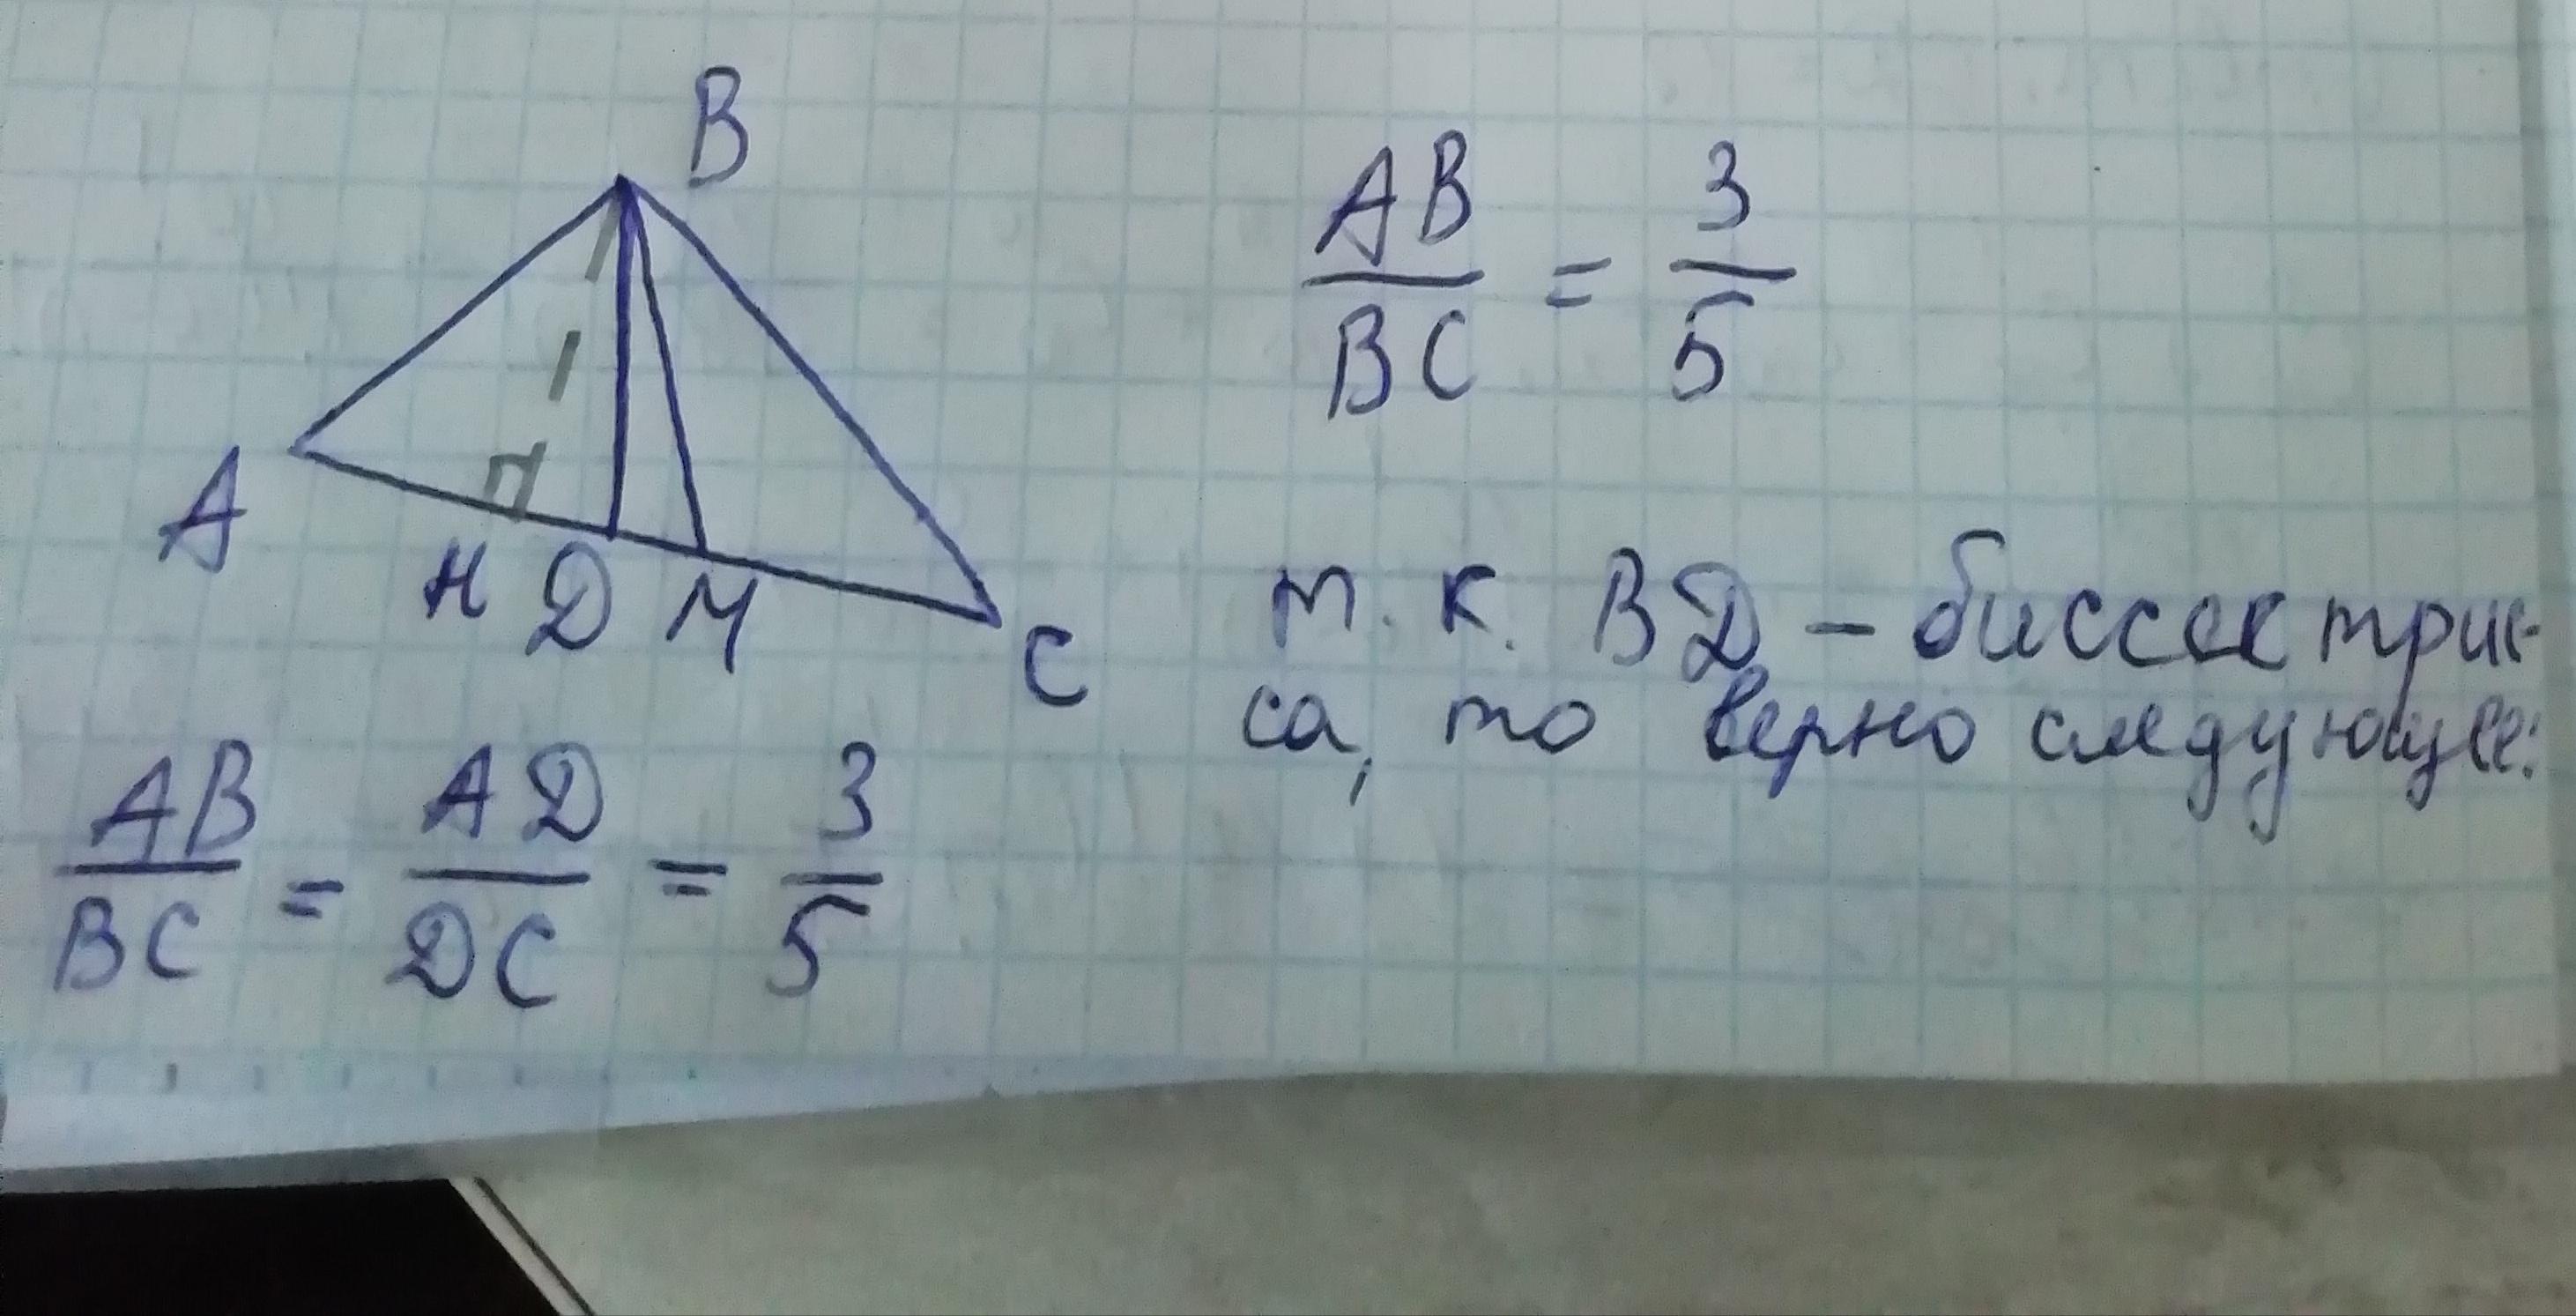 B
A
H D M
C
AB/BC = 3/5
т. к. BD – биссектри-
са, то верно следующее:
AB/BC = AD/DC = 3/5